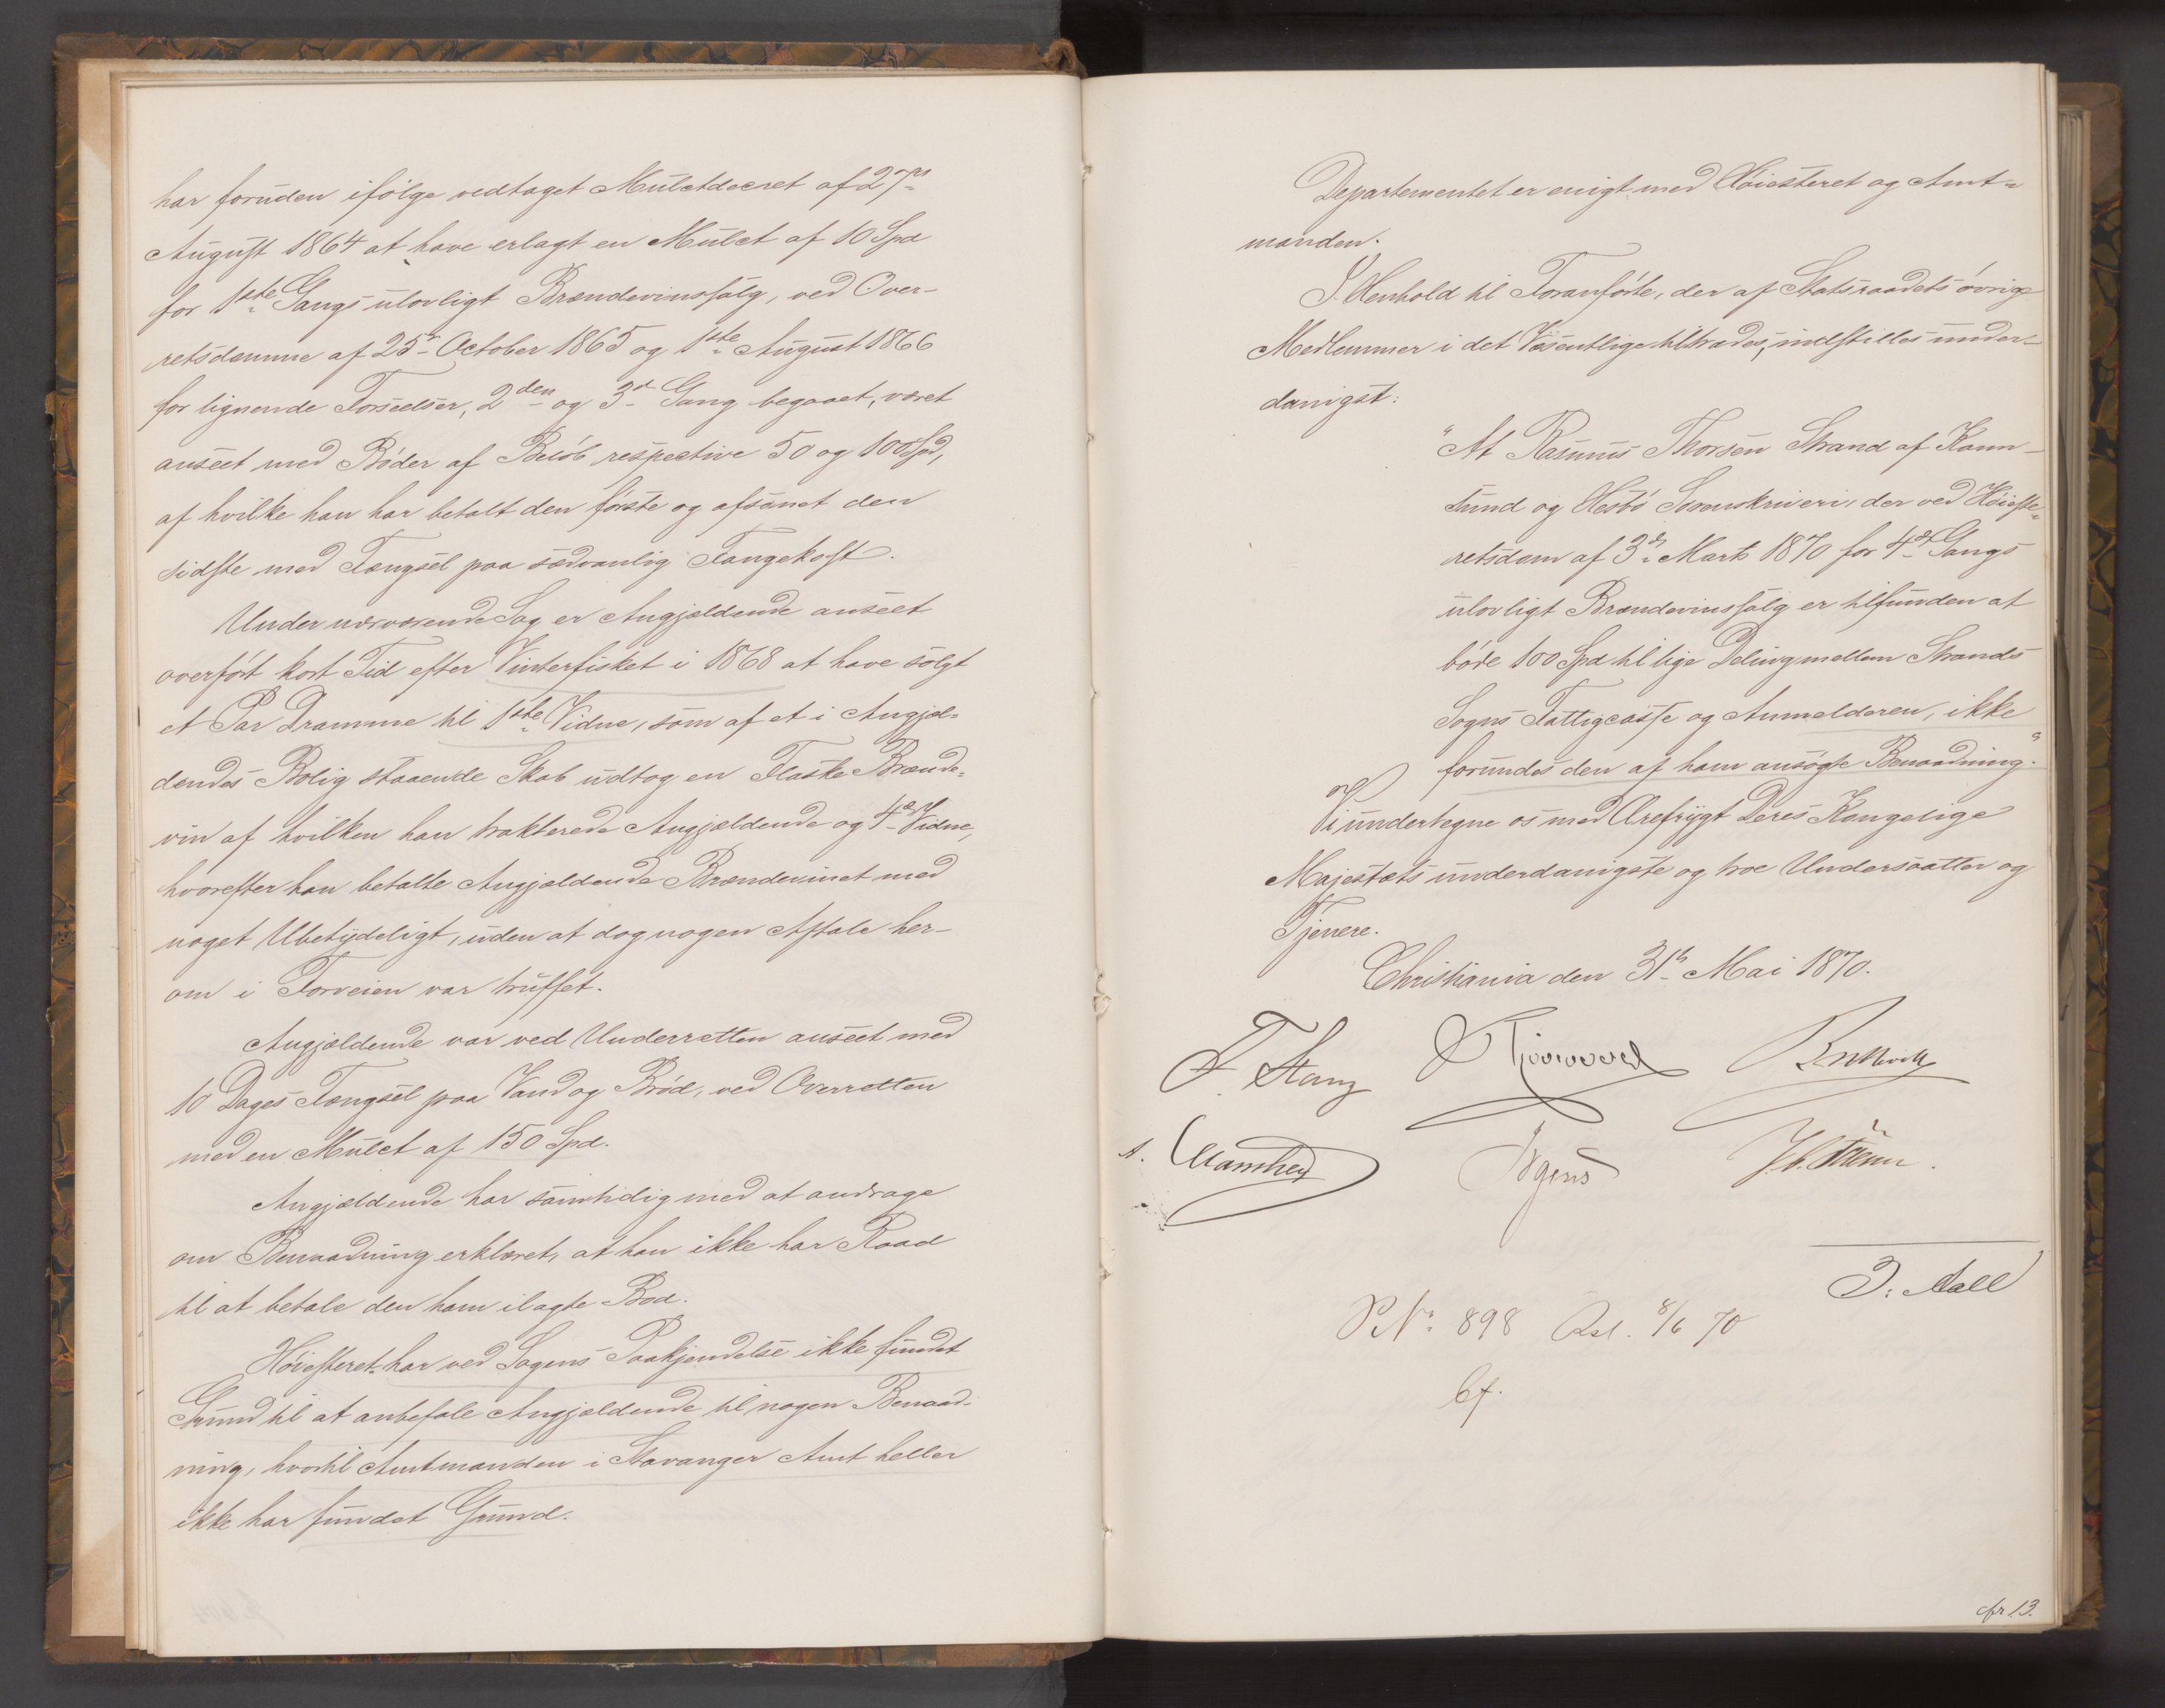 har foruden ifölge vedtaget Mulctdecret af 27de
August 1864 at have erlagt en Mulct af 10 Spd
for 1ste Gangs ulovligt Brændevinssalg, ved Over-
retsdomme af 25de October 1865 og 1ste August 1866
for lignende Forseelser, 2den og 3die Gang begaaet, været
anseet med Bøder af Beløb respective 50 og 100 Spd,
af hvilke han har betalt den første og afsonet den
sidste med Fængsel paa sædvanlig Fangekost.
Under nærværende Sag er Angjældende anseet
overført kort Tid efter Vinterfisket i 1868 at have solgt
et Par Dramme til 1ste Vidne, som af et i Angjæl-
dendes Bolig staaende Skab udtog en Flaske Brænde-
vin af hvilken han trakterede Angjældende og 4de Vidne,
hvorefter han betalte Angjældende Brændevinet med
noget Ubetydeligt, uden at dog nogen Aftale her-
om i Forveien var truffet.
Angjældende var ved Underretten anseet med
10 Dages Fængsel paa Vand og Brød, ved Overretten
med en Mulct af 150 Spd.
Angjældende har samtidig med at andrage
om Benaadning erklæret, at han ikke har Raad
til at betale den ham ilagte Bod.
Høiesteret har ved Sagens Paakjendelse ikke fundet
Grund til at anbefale Angjældende til nogen Benaad-
ning, hvortil Amtmanden i Stavanger Amt heller
ikke har fundet Grund.
Departementet er enigt med Høiesteret og Amt-
manden.
I Henhold til Foranførte, der af Statsraadets øvrige
Medlemmer i det Væsentlige tiltrædes, indstilles under-
danigst:
"At Rasmus Thorsen Strand af Karm-
sund og Hesbø Sorenskriveri, der ved Høieste-
retsdom af 3die Marts 1870 for 4de Gangs
ulovligt Brændevinssalg er tilfunden at
bøde 100 Spd til lige Deling mellem Strands
Sogns Fattigcasse og Anmelderen, ikke
forundes den af ham ansøgte Benaadning."
Vi undertegne os med Ærefrygt Deres Kongelige
Majestæts underdanigste og troe Undersaatter og
Tjenere.
Christiania den 31te Mai 1870.
F. Stang
Irgens
J. Aall
P. No. 898 Rsl. 8/6 70
bf.
cfr 13.